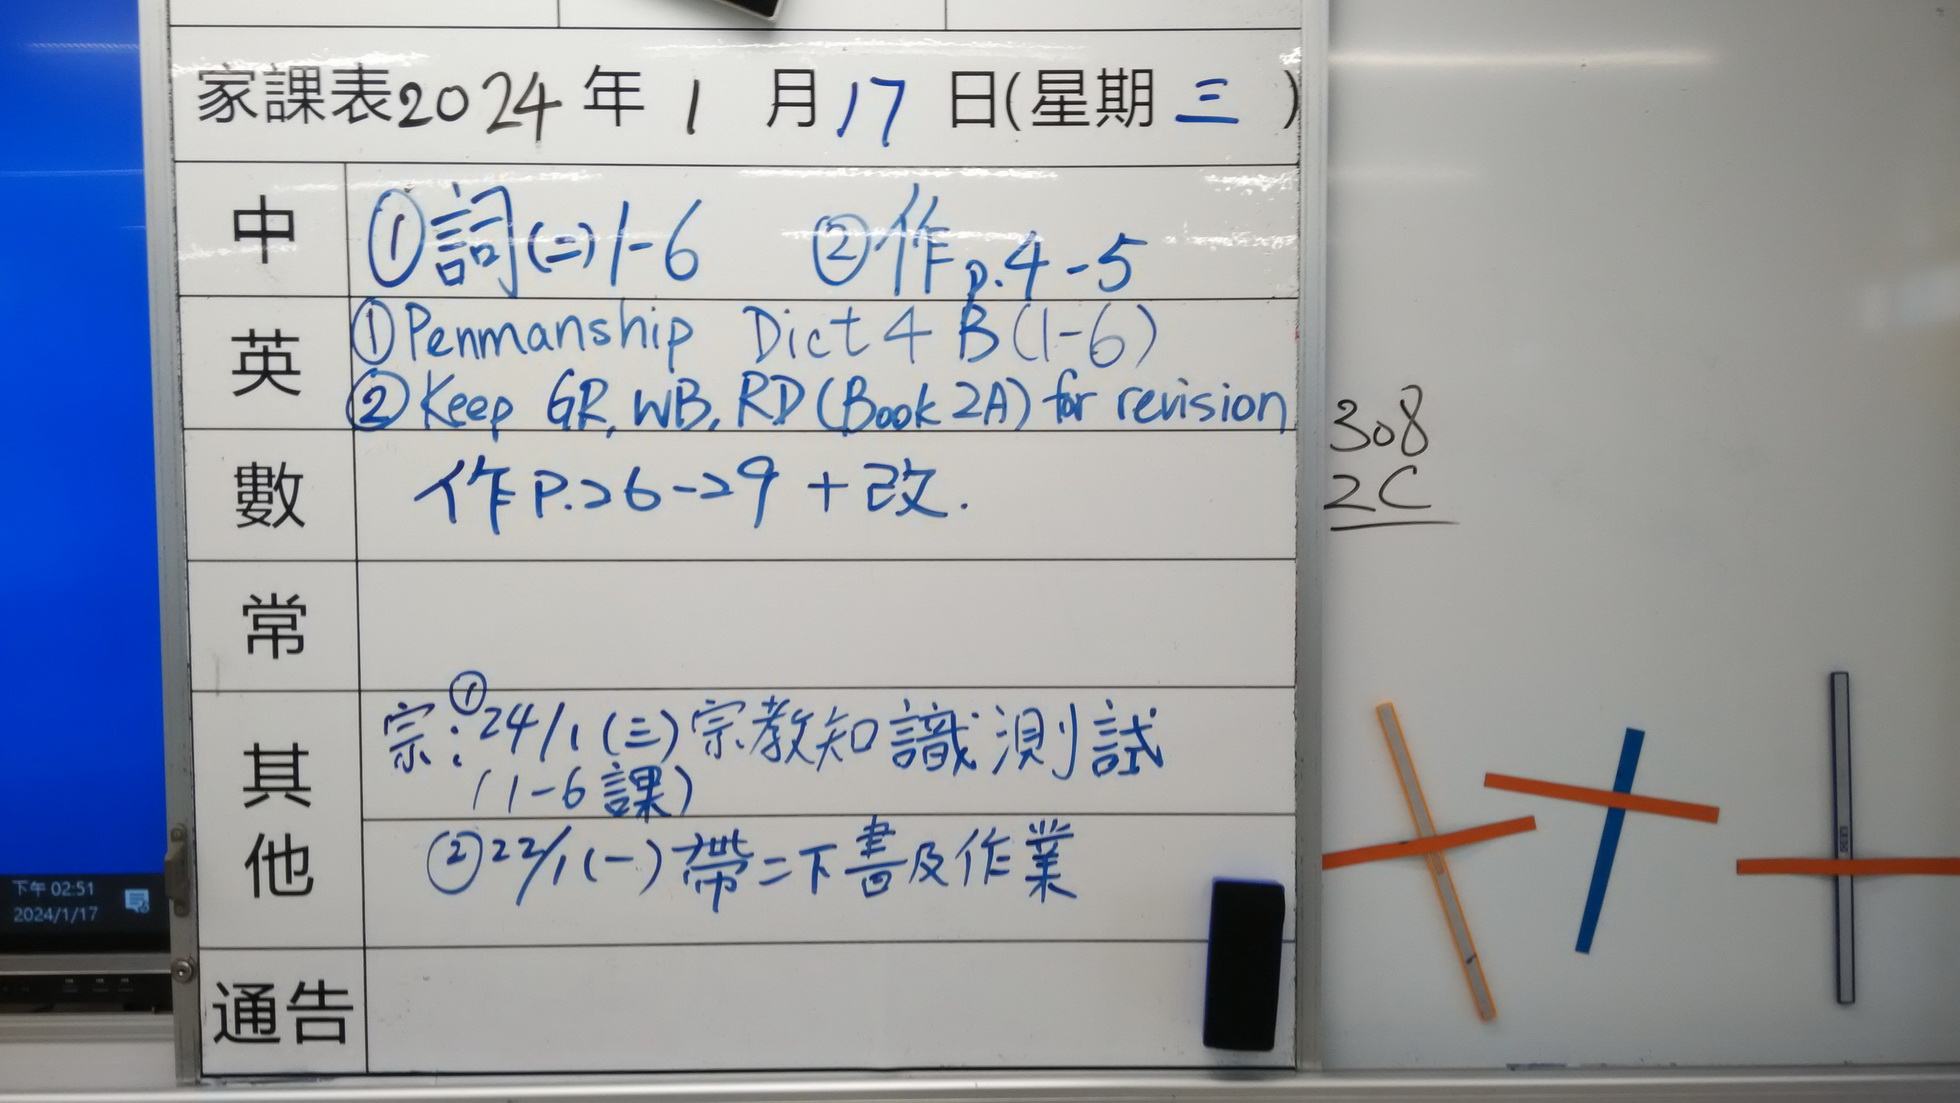 家課表2024年1月17日(星期三)
中
①詞(二)1-6 ②作p.4-5
英
①Penmanship Dict 4 B(1-6)
②Keep GR, WB, RD (Book 2A) for revision
數
作P.26-29 + 改.
常
其他
宗:①24/1(三)宗教知識測試
(1-6課)
②22/1(一)帶二下書及作業
通告
308
2C
下午 02:51
2024/1/17